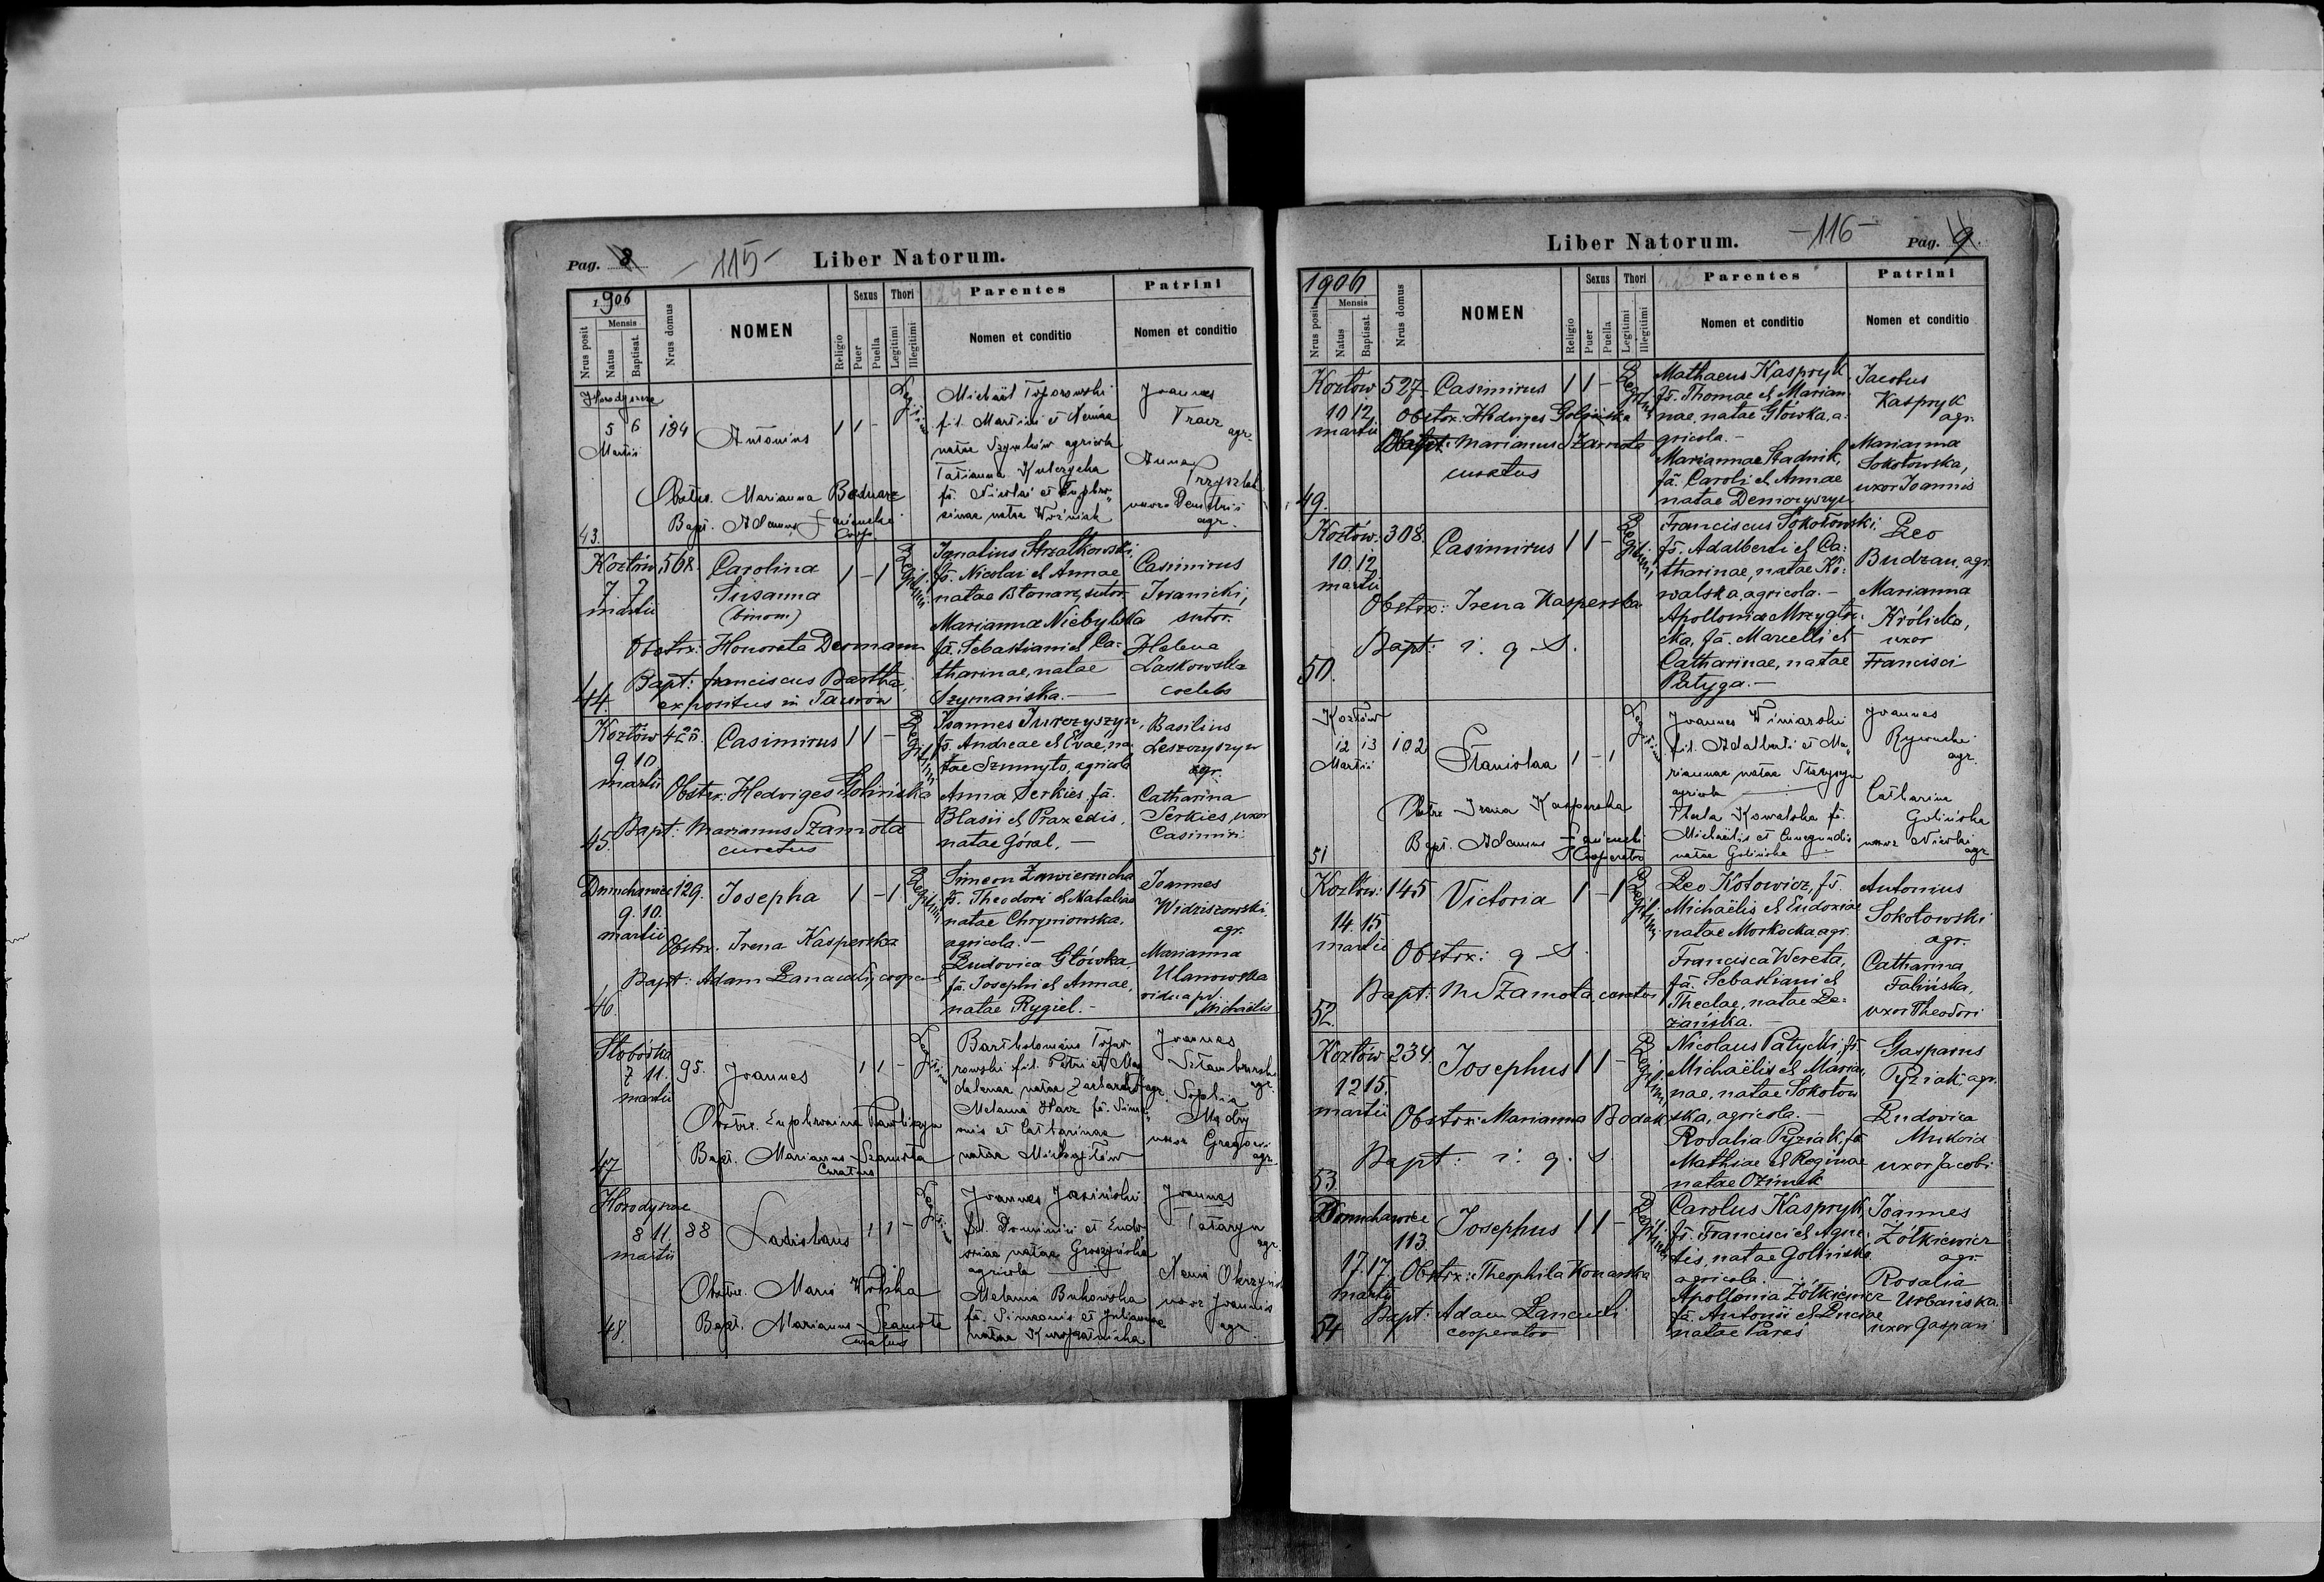 Pag. 8
- 115 -
Liber Natorum.
1906
Nrus posit
Mensis
Natus
Baptisat.
Nrus domus
NOMEN
Religio
Sexus
Puer
Puella
Thori
Legitimi
Illegitimi
Parentes
Nomen et conditio
Patrini
Nomen et conditio
5 6
Martii
184
Antonius
1 1 -
Obstr. Marianna Bednarz
Bapt. Adamus
43.
fil. Martini et
agricola
Tatianna
fa. Nicolai et Euphro
sinae natae Woźniak
Joannes
Tracz
agr.
Anna
uxor Demetrii
agr.
Kozłów 568.
7. 7
martii
Carolina
Susanna
(binom)
1 - 1
Legitimi
Obstrx: Honorata Dermann
Bapt: franciscus Bartha,
expositus in Taurów
44.
Ignatius Strzałkowski,
fs. Nicolai et Annae
natae Błonarz, sutor.
Marianna Niebylska
fa. Sebastiani et Ca-
tharinae, natae
Szymańska. -
Casimirus
Iwanicki,
sutor.
Helena
Laskowska
coelebs
Kozłów 428.
9. 10
martii
Casimirus
1 1 -
Legitimi
Obstrx: Hedviges Golińska
Bapt: Marianus Szamota
curatus
45.
Joannes Jurczyszyn,
fs. Andreae et Evae, na-
tae Szmyto, agricola
Anna Serkies, fa.
Blasii et Praxedis,
natae Góral. -
Basilius
Leszczyszyn
agr.
Catharina
Serkies, uxor
Casimiri
Dmuchawice 129.
9. 10.
martii
Josepha
1 - 1
Legitimi
Obstrx. Irena Kasperska
Bapt: Adam cooper
46.
Simeon Zawierucha
fs. Theodori et Nataliae
natae
agricola. -
Ludovica Główka,
fa. Josephi et Annae,
natae Rygiel. -
Joannes
Widziszowski
agr.
Marianna
Ulanowska
vidua p.
Michaelis
Słobódka
7 11.
martii
95.
Joannes
1 1 -
Obstr. Euphrosina
Bapt. Marianus Szamota
Curatus
47
Bartholomeus
rowski fil. Petri et Mag
dalenae natae
Melania fa. Sime
onis et Catharinae
natae
Joannes
agr.
Sophia
Mądry
uxor Gregorii
agr.
Horodyszcze
8 11.
martii
88
Ladislaus
1 1 -
Obstr. Maria Wolska
Bapt. Marianus Szamota
curatus
48.
Joannes Jasiński
fil. Dominici et Eudo
xiae natae
agricola
Melania Bukowska
fa. Simeonis et Julianae
natae
Joannes
Tataryn
agr.
uxor Joannis
agr.
Liber Natorum.
- 116 -
Pag. 9
1906
Nrus posit.
Mensis
Natus
Baptisat.
Nrus domus
NOMEN
Religio
Sexus
Puer
Puella
Thori
Legitimi
Illegitimi
Parentes
Nomen et conditio
Patrini
Nomen et conditio
Kozłów 527
10 12
martii
Casimirus
1 1 -
Obstrx: Hedviges Golińska
Bapt: Marianus Szamota
curatus
49.
Mathaeus Kaspryk
fs. Thomae et Marian-
nae, natae Główka, a-
gricola. -
Mariannae Stadnik,
fa. Caroli et Annae
natae
Jacobus
Kaspryk
agr.
Marianna
Sokołowska,
uxor Joannis
Kozłów. 308.
10. 12
martii
Casimirus
1 1 -
Legitimi
Obstrx: Irena Kasperska
Bapt: i. q. S.
50.
Franciscus Sokołowski.
fs. Adalberti et Ca-
tharinae, natae Ko-
walska, agricola. -
Apollonia Mrzygło-
cka, fa. Marcelli et
Catharinae, natae
Patyga. -
Leo
Budzan, agr.
Marianna
Królicka,
uxor
Francisci
Kozłów
12 13
Martii
102
Stanislaa
1 - 1
Obstrx Irena Kasperska
Bapt. Adamus
Cooperator
51
Joannes Winiarski
fil. Adalberti et Ma
riannae natae
agricola
Thecla Kowalska fa.
Michaelis et Cunegundis
natae Golińska
Joannes
agr.
Catharina
Golińska
uxor Nicolai
agr.
Kozłów: 145
14. 15
martii
Victoria
1 - 1
Legitimi
Obstrx: q S.
Bapt: M Szamota, curatus
52.
Leo Kotowicz, fs.
Michaëlis et Eudoxiae
natae agr.
Francisca Wereta,
fa. Sebastiani et
Theclae, natae Le-
żańska. -
Antonius
Sokołowski
agr.
Catharina
Falińska,
uxor Theodori
Kozłów 234.
12 15
martii
Josephus
1 1 -
Legitimi
Obstrx: Marianna Bodak
Bapt: i. q. S.
53.
Nicolaus Patycki, fs.
Michaëlis et Marian-
nae, natae Sokołow
ska, agricola. -
Rosalia Pyziak, fa
Mathiae et Reginae
natae Ozimek
Gasparus
Pyziak agr.
Ludovica
uxor Jacobi
Dmuchawice
113.
17. 17
martii
Josephus
1 1 -
Legitimi
Obstrx: Theophila Konarska
Bapt: Adam
cooperator
54
Carolus Kaspryk,
fs. Francisci et Agne-
tis, natae Golińska
agricola. -
Apollonia Żółkiewicz
fa. Antonii et Luciae
natae Paraś
Joannes
Żółkiewicz
agr.
Rosalia
Urbańska
uxor Gaspari